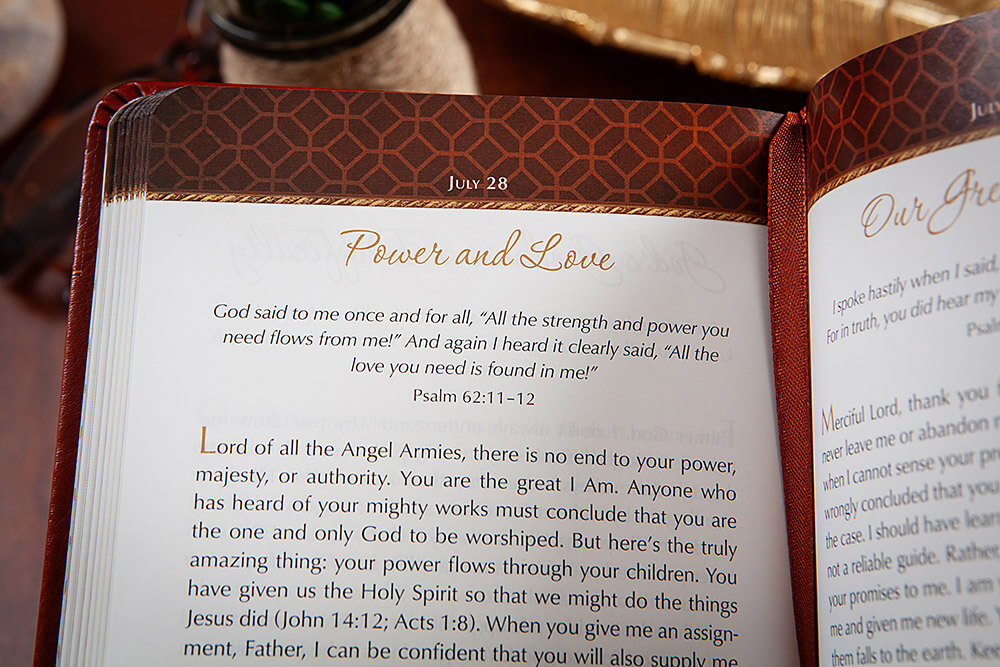 July 28
Power and Love
God said to me once and for all, “All the strength and power you
need flows from me!” And again I heard it clearly said, “All the
love you need is found in me!”
Psalm 62:11–12
Lord of all the Angel Armies, there is no end to your power,
majesty, or authority. You are the great I Am. Anyone who
has heard of your mighty works must conclude that you are
the one and only God to be worshiped. But here’s the truly
amazing thing: your power flows through your children. You
have given us the Holy Spirit so that we might do the things
Jesus did (John 14:12; Acts 1:8). When you give me an assign-
ment, Father, I can be confident that you will also supply me
Our
I spoke hastily when I said,
For in truth, you did hear my
Merciful Lord, thank you
never leave me or abandon
when I cannot sense your
wrongly concluded that you
the case. I should have
not a reliable guide. Rather
your promises to me. I am
me and given me new life.
them falls to the earth.